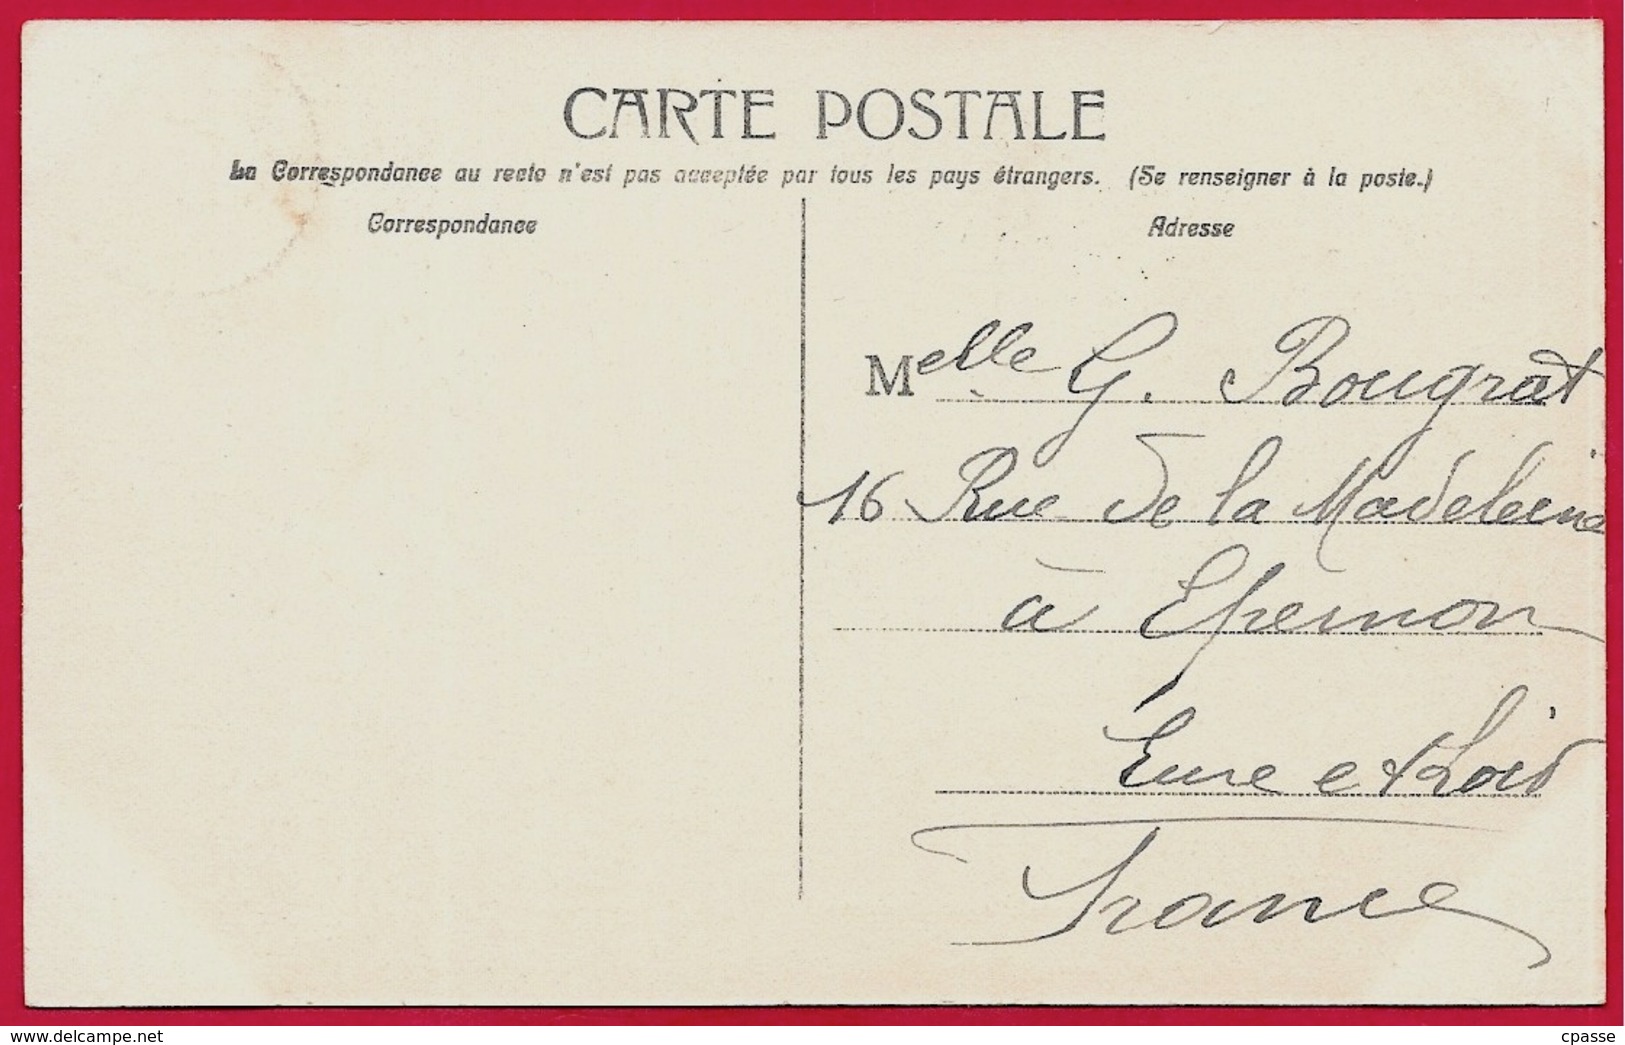 CARTE POSTALE
La Correspondance au recto n'est pas acceptée par tous les pays étrangers. (Se renseigner à la poste.)
Correspondance
Adresse
Melle G. Bougrat
16 Rue de la Madeleine
à Epernon
Eure et Loir
France
delcampe.net
cpasse